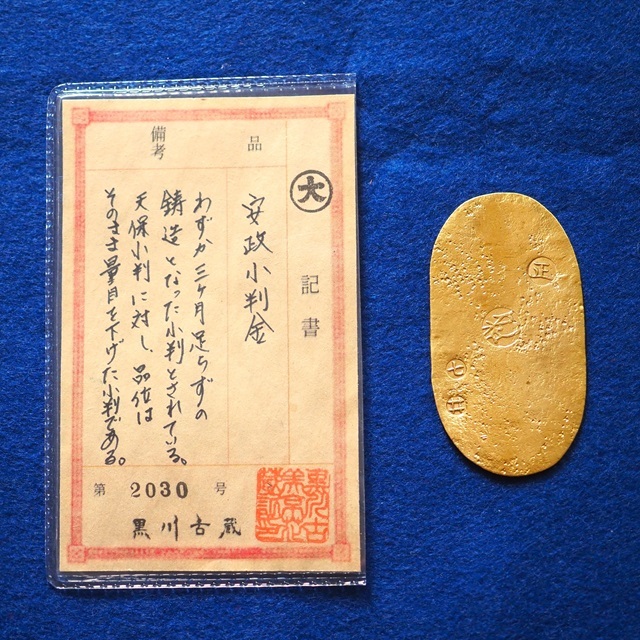 大
記書
品
安政小判金
備考
わずか三ヶ月足らずの
鋳造となった小判とされている。
天保小判に対し、品位は
そのまま量目を下げた小判である。
第 2030 号
黒川古蔵
正